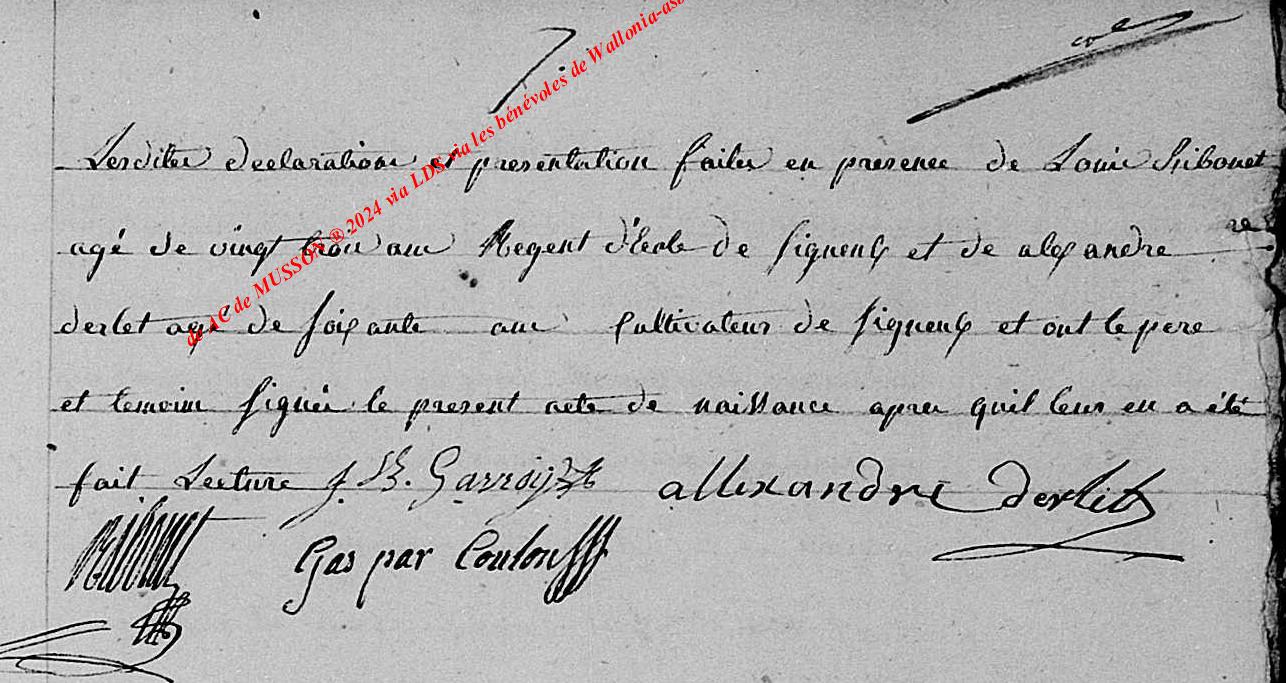 7.
Lesdites declarations et presentation faites en presence de Louis Ribonet
agé de vingt trois ans Regent d'Ecole de Signeulx et de alexandre
derlet agé de soixante ans Cultivateur de Signeulx et ont le pere
et temoins signés le present acte de naissance apres quil leur en a été
fait Lecture J. B. alexandre Derlet
Ribonet Gaspar
de AC de MUSSON ® 2024 via LDS via les bénévoles de Wallonia-as